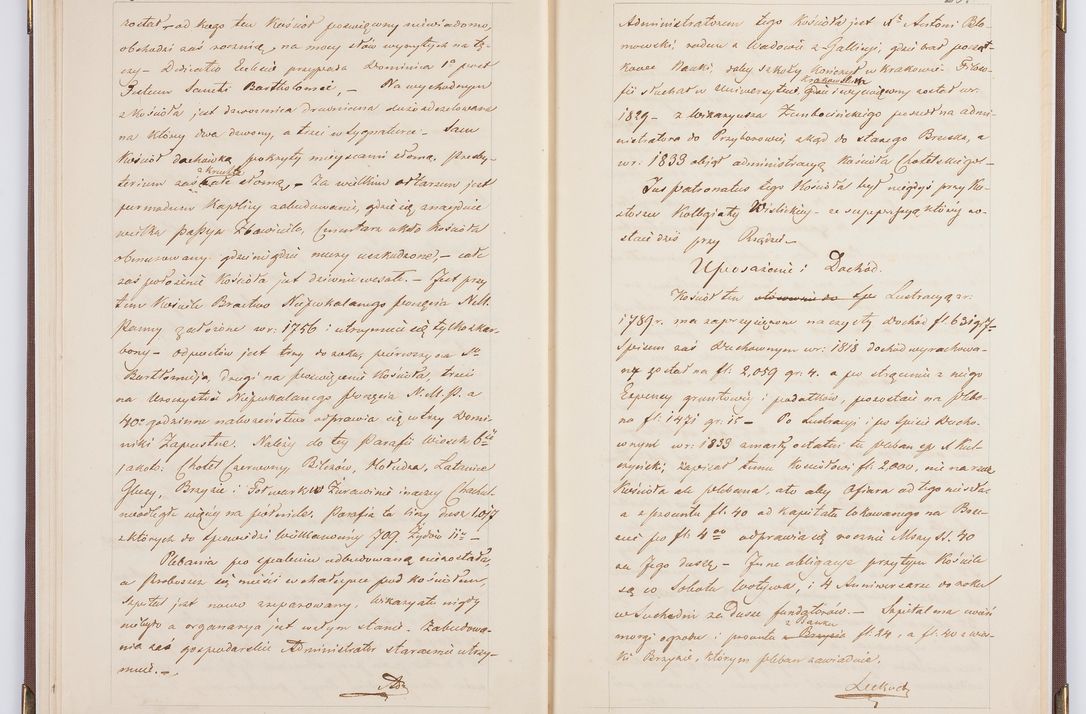 został od kogo ten Kościół poswięcony niewiadomo,
obchodzi zaś rocznicę na mocy słów wyrytych na
Dedicatio Eclesie przypada Dominica 1a post
Festum Sancti Bartholomei, — Na wychodnym
z Kościoła jest dzwonnica drewniana
na który dwa dzwony, a trzeci w sygnaturce — Sam
Kościół dachówką pokryty miejscami słomą, Presby-
terium zaś całe słomą — Za wielkim ołtarzem jest
Kaplicy zabudowanie, gdzie się znajduie
wielka Passya Zbawiciela, Cmentarz około Kościoła
obmurowany gdzieniegdzie mury uszkodzone, — całe
zaś położenie Kościoła jest — Jest przy
tem Kościele Bractwo Niepokalanego poczęcia N.M.
Panny założone w r. 1756 i utrzymuie się tylko z kar-
bony — odpustów jest trzy do roku, pierwszy na Sw
Bartłomieja, drugi na poswięcenie Kościoła, trzeci
na Uroczystość Niepokalanego poczęcia N.M.P. a
40o godzinne nabożeństwo odprawia się w trzy Domi-
niki Zapustne. Należy do tey Parafii Wiosek 6ść
jakoto: Chotel Czerwony Bilczów,
Gluzy, Brzyzie i Folwark Zurawiniec inaczej
nieodległe więcey na pół mile. Parafia ta liczy dusz 1,017
z których do spowiedzi Wielkanocny 709. Żydów 11.
Plebania po spaleniu odbudowaną niezostała,
a Proboszcz się mieści w chałupce pod Kościołem,
Szpital jest nowo zreparowany, Wikaryatu nigdy
niebyło a organaryą jest w złym stanie. Zabudowa-
nia zaś gospodarskie Administrator starannie utrzy-
muie. —
Administratorem tego Kościoła jest X. Antoni
rodem z Wadowic z Gallicyi, gdzie brał począt-
kowe Nauki, dalej szkoły kończył w Krakowie Filozo-
Krakowskim
fii słuchał w Uniwersytecie, gdzie i wyświęcony został w r.
1829 — z Wikaryusza poszedł na admi-
nistratora do Przyborowia, zkąd do starego Brzeska, a
w r. 1833 objął administracyą Kościoła Chotelskiego.
Jus patronatus tego Kościoła był niegdyś przy Ku-
stoszu Kollegiaty Wislickiey — ze suppressyą, który zo-
staie dziś przy Rządzie. —
Uposażenie i Dochód.
Kościół ten Lustracyą z r.
1789 r. ma zaprzysiężone na czysty Dochód fl. 631 g 7—
Spisem zaś Duchownym w r: 1818 dochód wyrachowa-
ny został na fl. 2,059 gr: 4. a po strąceniu z niego
Expensy gruntowey i podatków, pozostaie na pleba-
na fl. 1471 gr: 15 — Po Lustracyi i po spisie Ducho-
wnym w r: 1833 zmarły ostatni tu pleban
zapisał temu Kościołowi fl: 2,000, nie na rzecz
Kościoła ale plebana, ato aby Ofiara od tego
a z procentu fl. 40 od kapitału lokowanego na
po fl. 4 odprawia się rocznie Mszy SS. 40
za Jego duszę — Inne obligacye przy tym Kościele
są co Sobota Wotywa i 4 Anniwersarze do roku
w Suchedni za Dusze fundatorów. — Szpital ma
morgi ogrodu i procentu fl. 24, a fl. 40 z wio-
ski Brzyzie, którym pleban zawiaduie.